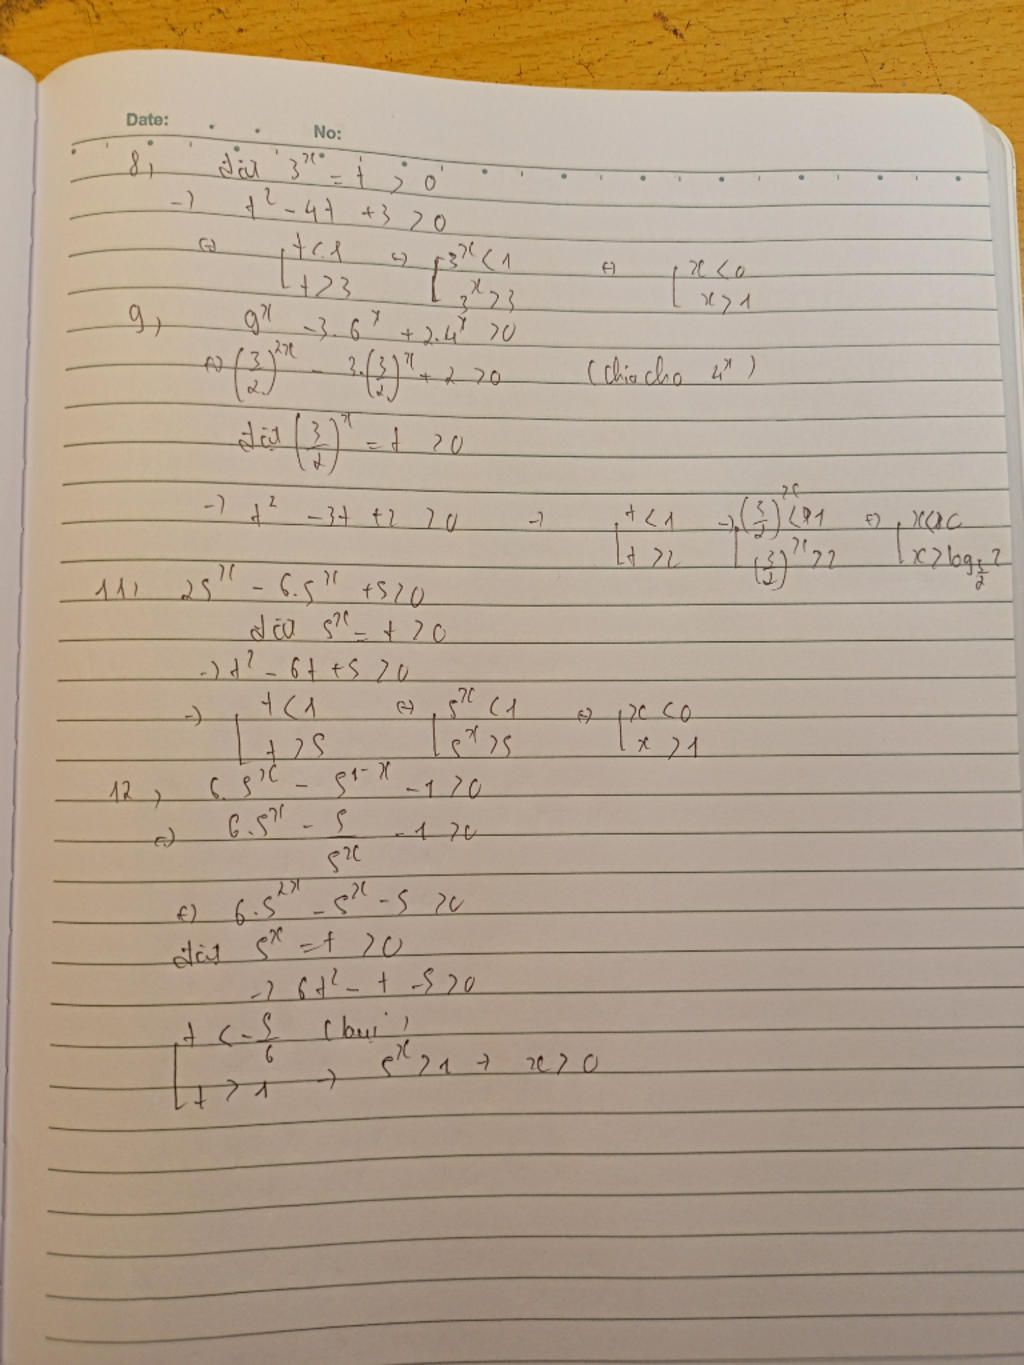 Date: No:
8, đặt 3^x = t > 0
→ t² - 4t + 3 > 0
⇔ [ t < 1 ⇔ [ 3^x < 1 ⇔ [ x < 0
t > 3 3^x > 3 x > 1
9, 9^x - 3.6^x + 2.4^x > 0
⇔ (3/2)^2x - 3.(3/2)^x + 2 > 0 (chia cho 4^x)
đặt (3/2)^x = t > 0
→ t² - 3t + 2 > 0 → [ t < 1 → [ (3/2)^x < 1 ⇔ [ x <
t > 2 (3/2)^x > 2 x > log_3/2 2
11, 25^x - 6.5^x + 5 > 0
đặt 5^x = t > 0
→ t² - 6t + 5 > 0
→ [ t < 1 ⇔ [ 5^x < 1 ⇔ [ x < 0
t > 5 5^x > 5 x > 1
12, 6.5^x - 5^1-x - 1 > 0
⇔ 6.5^x - 5/5^x - 1 > 0
⇔ 6.5^2x - 5^x - 5 > 0
đặt 5^x = t > 0
→ 6t² - t - 5 > 0
[ t < -5/6 (loại)
t > 1 → 5^x > 1 → x > 0